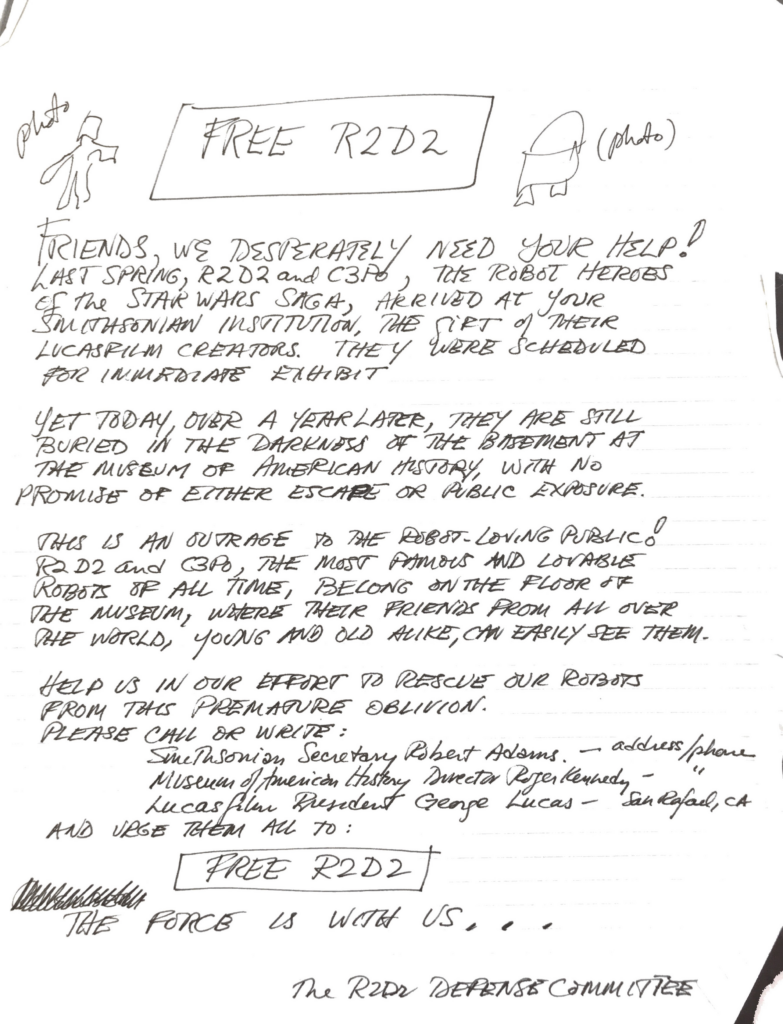 photo
FREE R2D2
(photo)
FRIENDS, WE DESPERATELY NEED YOUR HELP!
LAST SPRING, R2D2 and C3PO, THE ROBOT HEROES
OF the STAR WARS SAGA, ARRIVED AT YOUR
SMITHSONIAN INSTITUTION, THE GIFT of THEIR
LUCASFILM CREATORS. THEY WERE SCHEDULED
FOR IMMEDIATE EXHIBIT
YET TODAY, OVER A YEAR LATER, THEY ARE STILL
BURIED IN THE DARKNESS OF THE BASEMENT AT
THE MUSEUM OF AMERICAN HISTORY, WITH NO
PROMISE OF EITHER ESCAPE OR PUBLIC EXPOSURE.
THIS IS AN OUTRAGE TO THE ROBOT-LOVING PUBLIC!
R2D2 and C3PO, THE MOST FAMOUS AND LOVABLE
ROBOTS OF ALL TIME, BELONG ON THE FLOOR OF
THE MUSEUM, WHERE THEIR FRIENDS FROM ALL OVER
THE WORLD, YOUNG AND OLD ALIKE, CAN EASILY SEE THEM.
HELP US IN OUR EFFORT TO RESCUE OUR ROBOTS
FROM THIS PREMATURE OBLIVION.
PLEASE CALL OR WRITE:
Smithsonian Secretary Robert Adams. - address/phone
Museum of American History Director Roger Kennedy - "
Lucasfilm President George Lucas - San Rafael, CA
AND URGE THEM ALL TO:
FREE R2D2
THE FORCE IS WITH US...
The R2D2 DEFENSE COMMITTEE